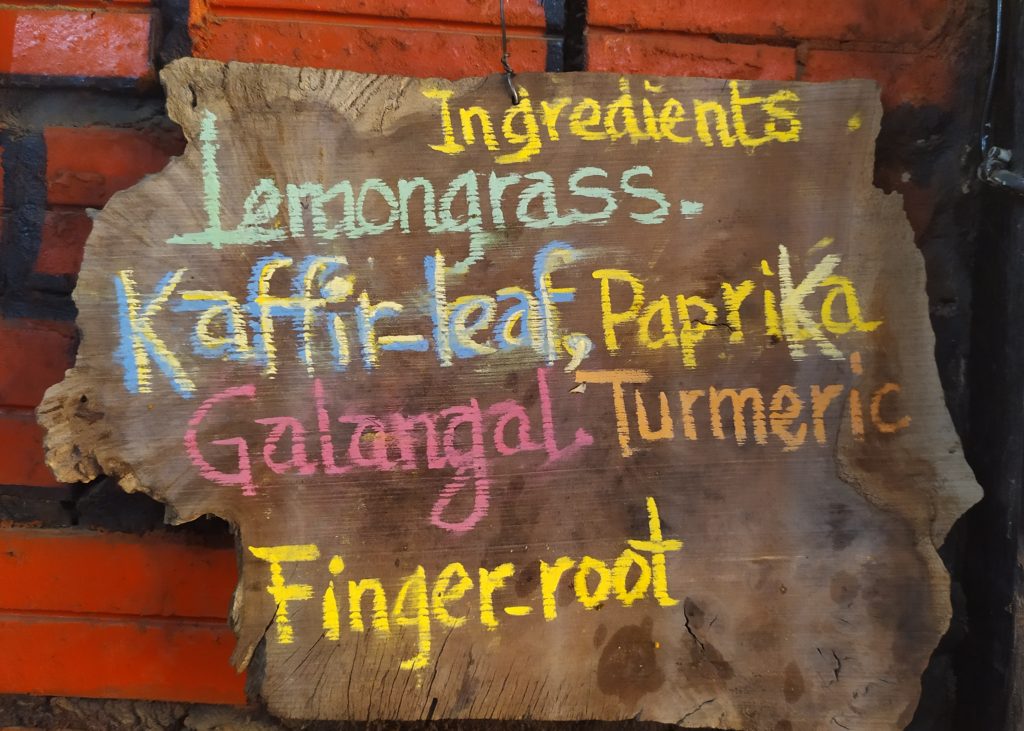 Ingredients
Lemongrass.
Kaffir-leaf, Paprika
Galangal. Turmeric
Finger-root